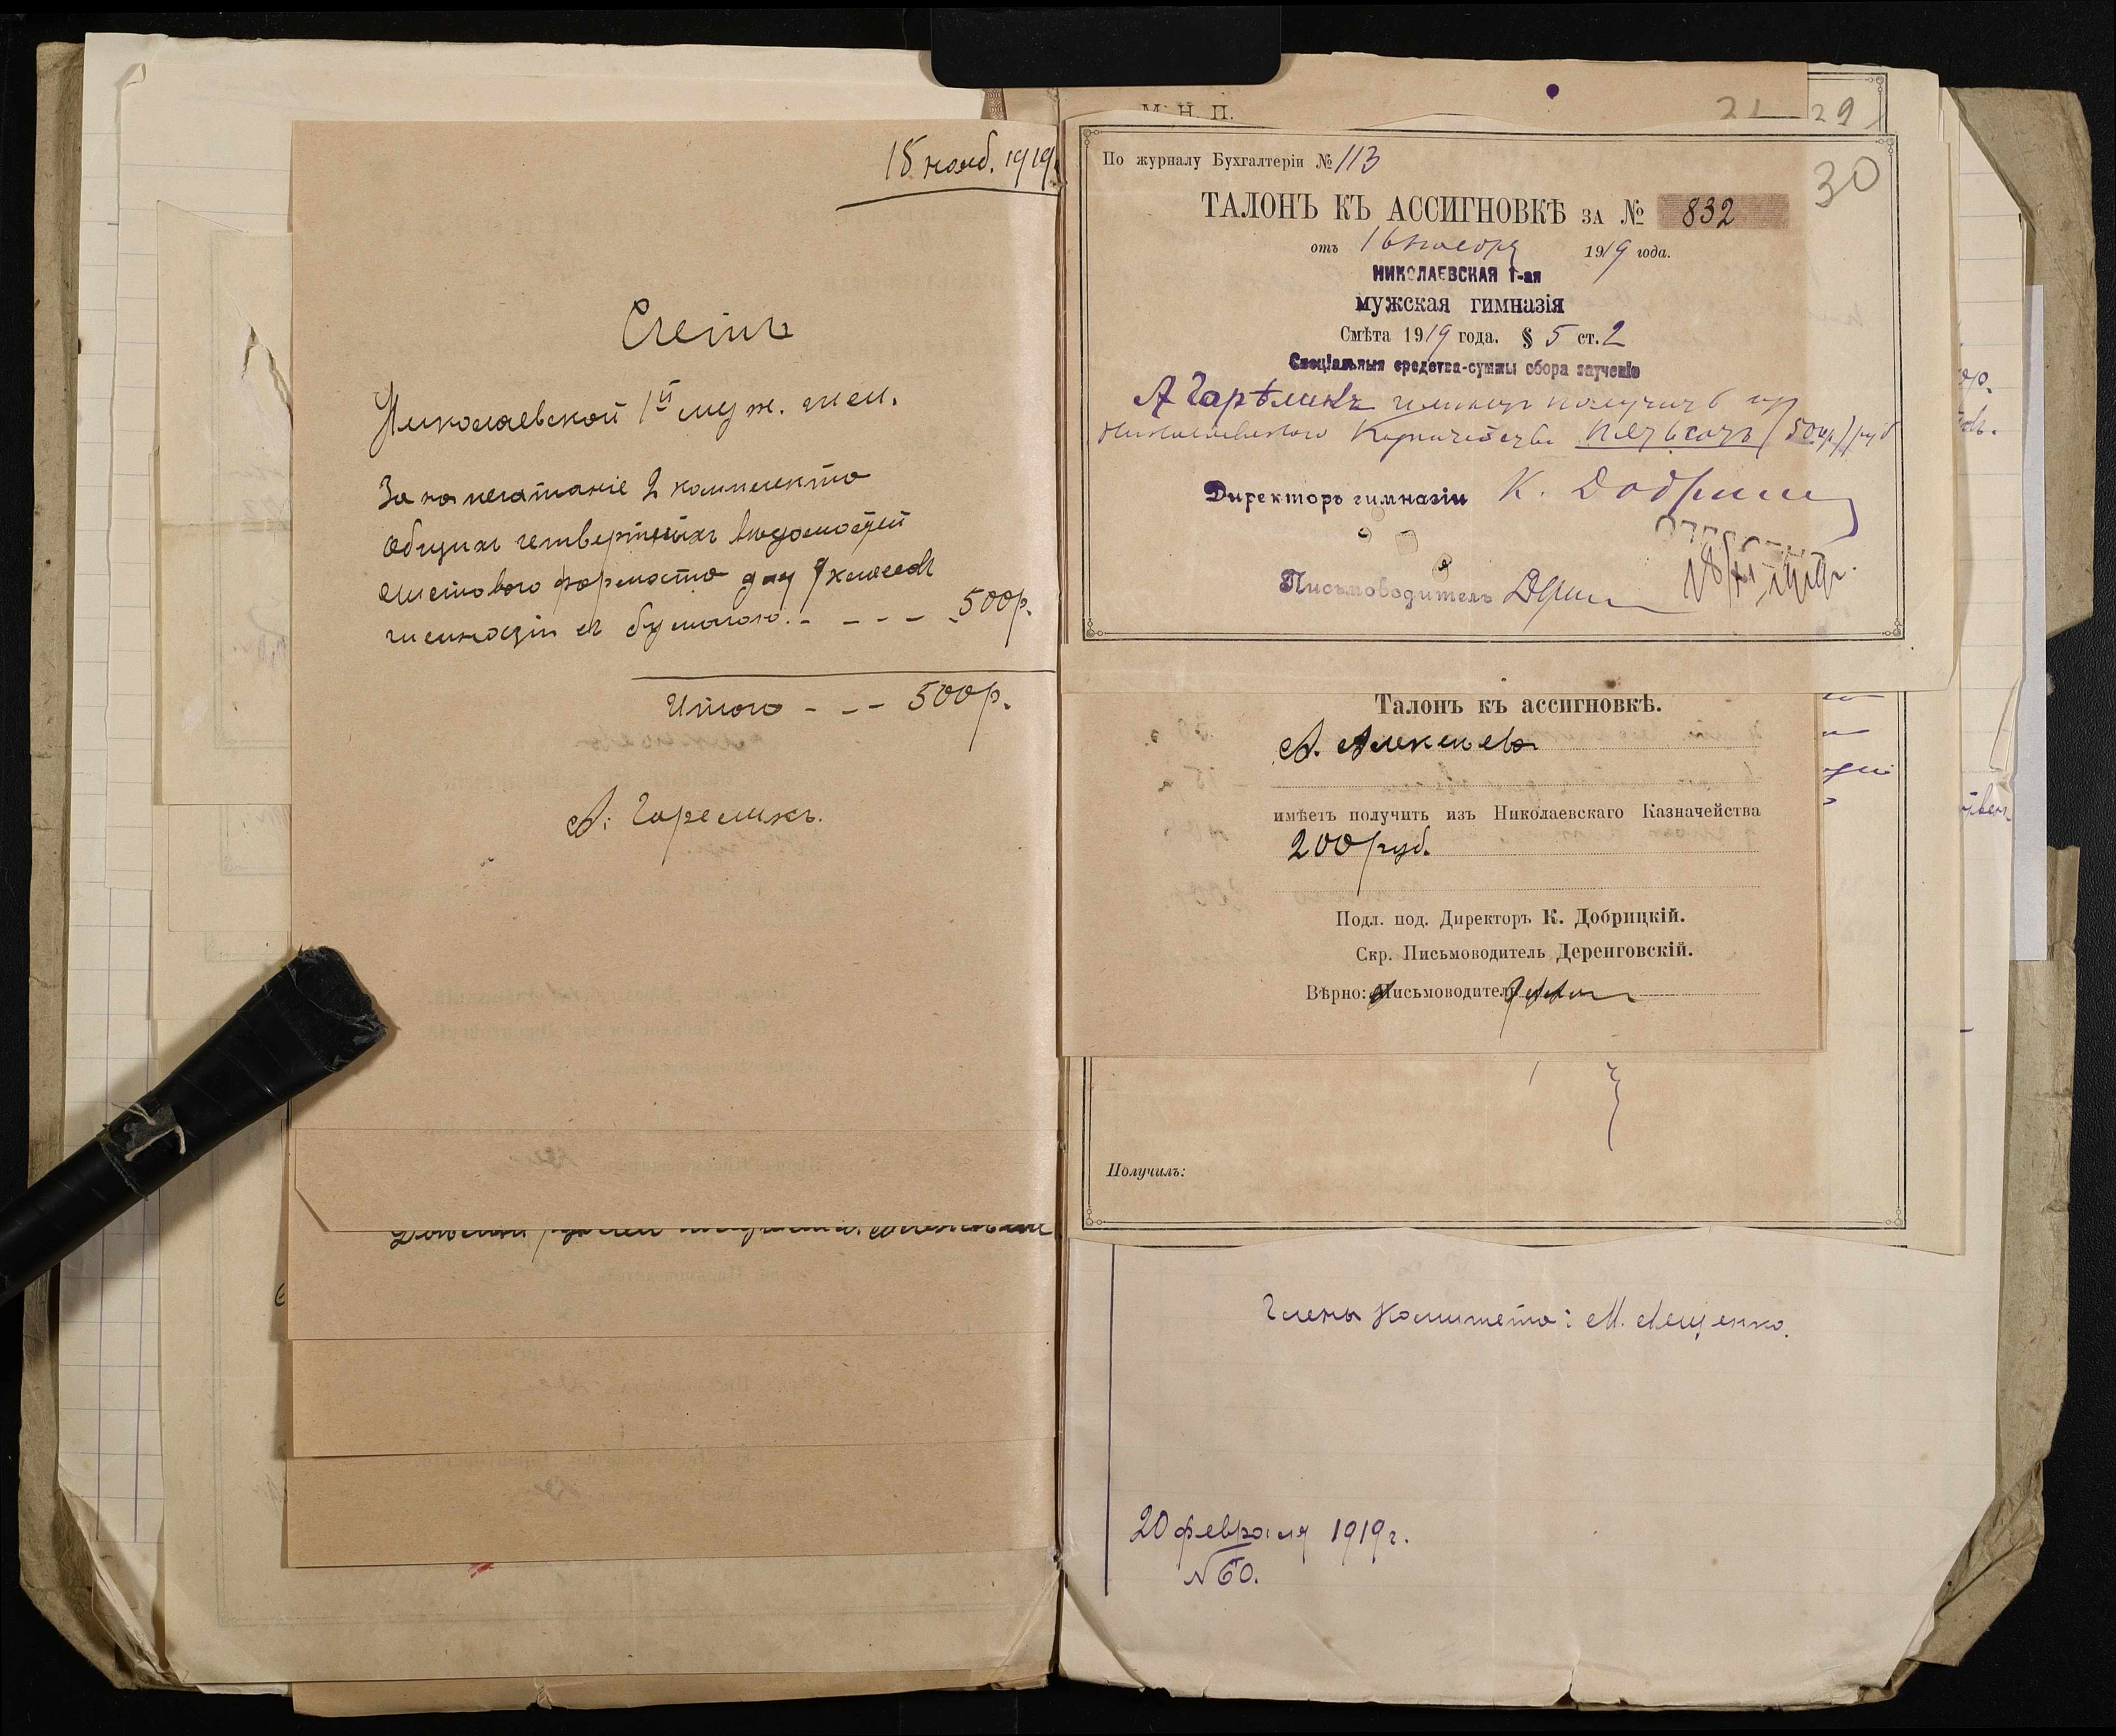 15 нояб. 1919
Счетъ
Николаевской 1й муж. гим.
За напечатаніе 2 комплекта
общихъ четвертныхъ вѣдомостей
листового формата для классовъ
гимназіи съ бумагою. - - - - 500р.
Итого - - - 500р.
А. Гореликъ.
М. Н. П.
29
По журналу Бухгалтеріи № 113
30
ТАЛОНЪ КЪ АССИГНОВКѢ ЗА № 832
отъ 16 ноября 1919 года.
НИКОЛАЕВСКАЯ 1-ая
мужская гимназія
Смѣта 1919 года. § 5 ст. 2
Спеціальныя средства-суммы сбора заученіе
А Гарѣликъ имѣетъ получить из
Николаевского Казначейства пятьсотъ (500р) руб
Директоръ гимназіи К. Добрицкій
Письмоводитель
18/XI 1919г.
Талонъ къ ассигновкѣ.
А. Алексѣевъ
имѣетъ получить изъ Николаевскаго Казначейства
200 руб.
Подл. под. Директоръ К. Добрицкій.
Скр. Письмоводитель Деренговскій.
Вѣрно: Письмоводитель
Получилъ:
Члены Комитета: М. Лещенко.
20 февраля 1919г.
№ 60.